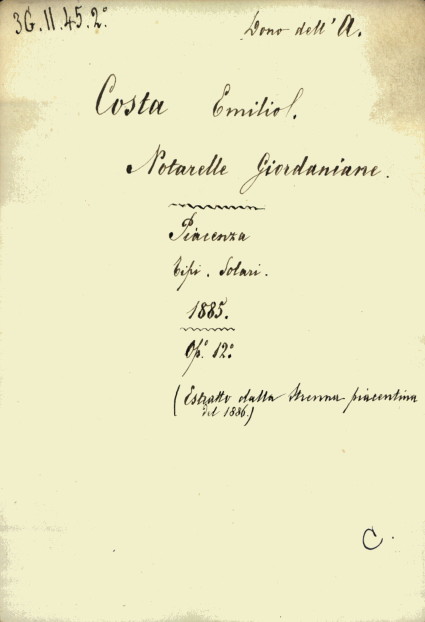 3G.11.45.2º
Dono dell' A.
Costa Emilio.
Notarelle Giordaniane.
Piacenza
Tipi. Solari.
1885.
Opº 12º
(Estratto dalla Strenna piacentina
del 1886.)
C.